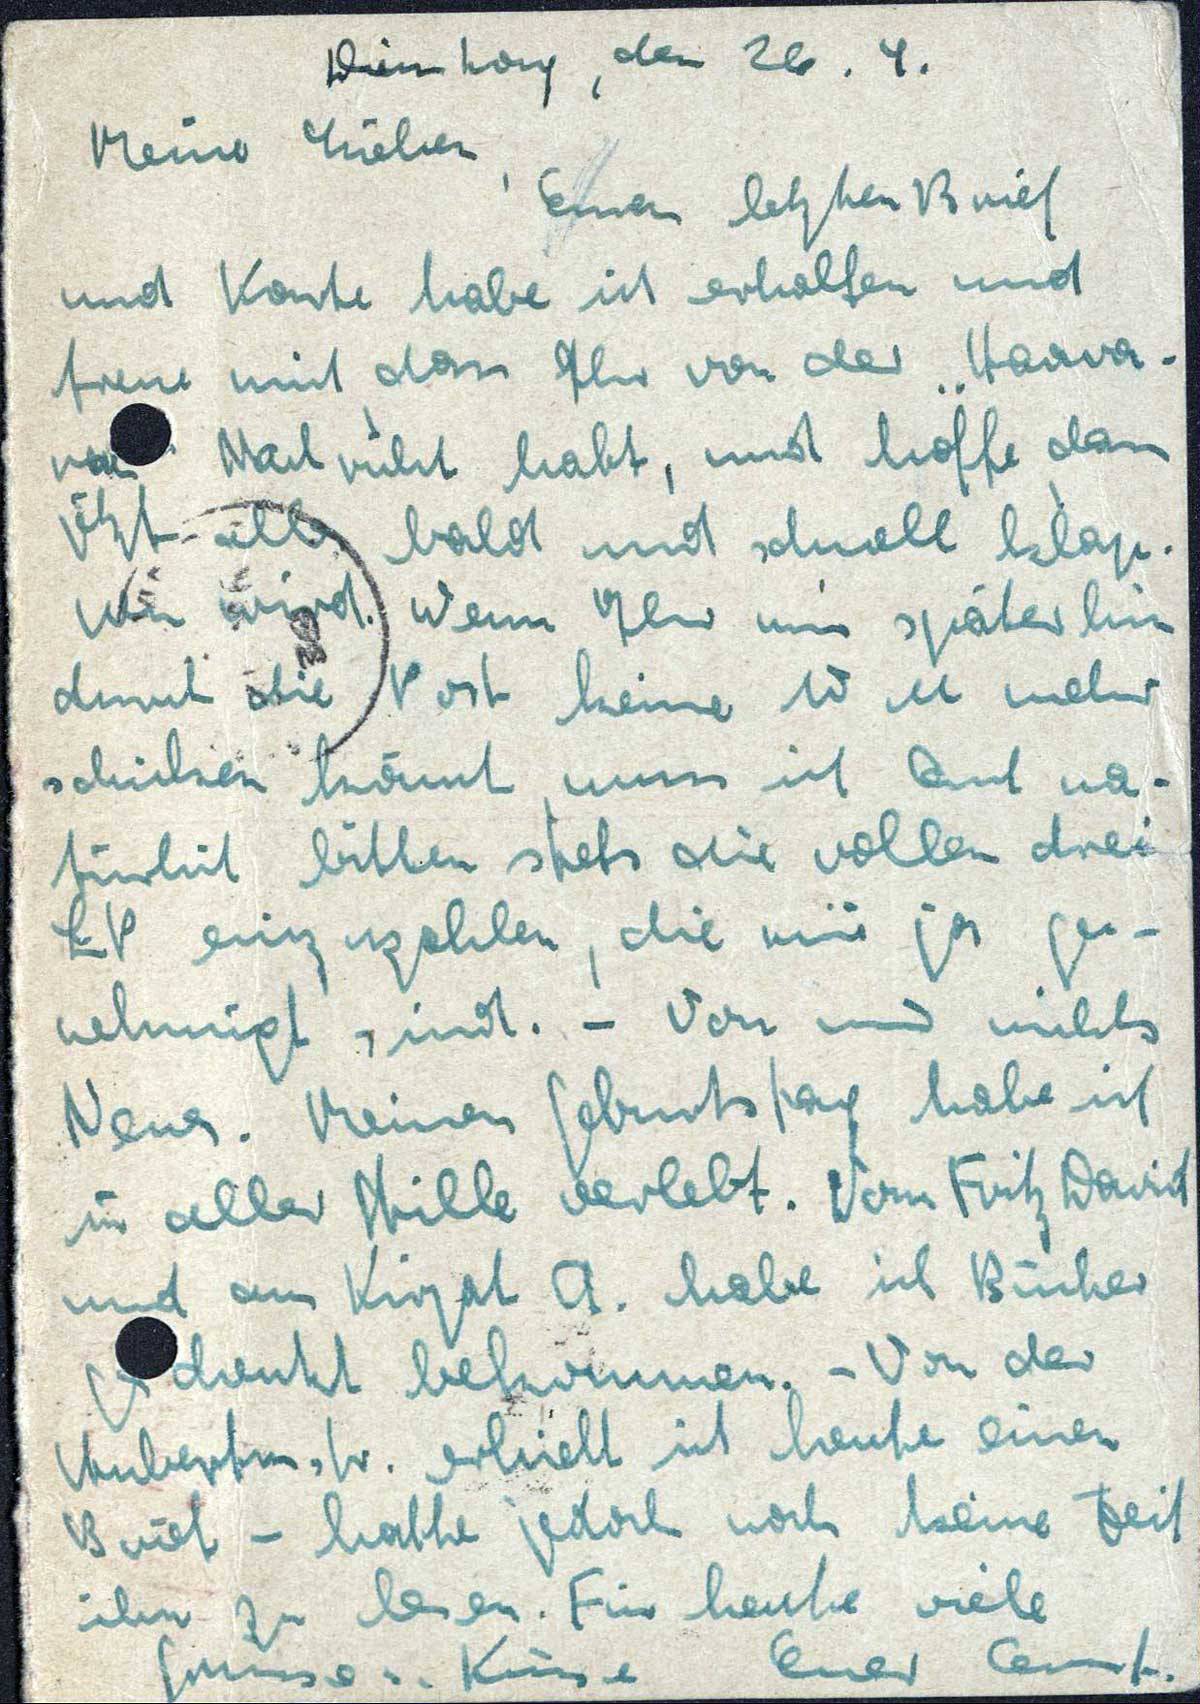 Dienstag, den 26. 4.
Meine Lieben,
Euren letzten Brief
und Karte habe ich erhalten und
freue mich, dass Ihr von der „Haava-
ra" Nachricht habt, und hoffe, dass
jetzt alles bald und schnell klap-
pen wird. Wenn Ihr mir späterhin
durch die Post keine RM mehr
schicken könnt, muss ich Euch na-
türlich bitten stets die vollen drei
LP einzuzahlen, die mir ja ge-
nehmigt sind. – Von mir nichts
Neues. Meinen Geburtstag habe ich
in aller Stille verlebt. Von Fritz David
und aus Kirjat A. habe ich Bücher
geschenkt bekommen. – Von der
Hubertusstr. erhielt ich heute einen
Brief – hatte jedoch noch keine Zeit
ihn zu lesen. Für heute viele
Grüsse u. Küsse Euer